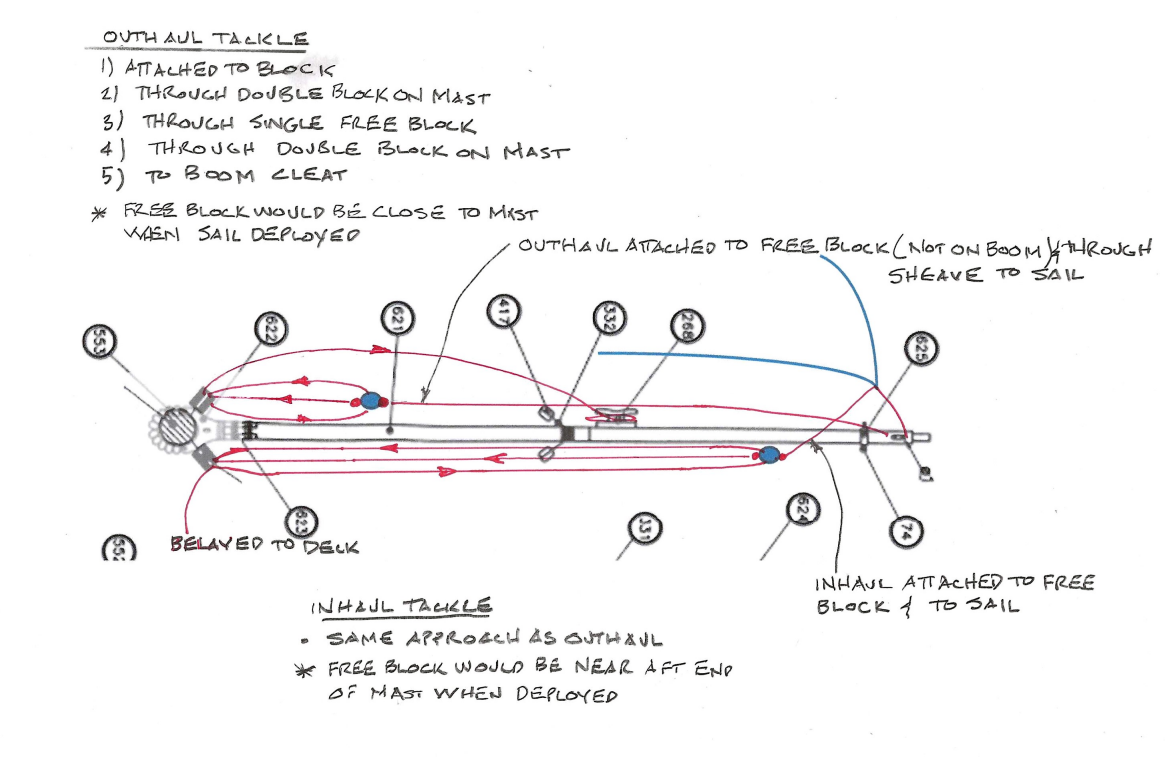 OUTHAUL TACKLE
1) ATTACHED TO BLOCK
2) THROUGH DOUBLE BLOCK ON MAST
3) THROUGH SINGLE FREE BLOCK
4) THROUGH DOUBLE BLOCK ON MAST
5) TO BOOM CLEAT
* FREE BLOCK WOULD BE CLOSE TO MAST
WHEN SAIL DEPLOYED
OUTHAUL ATTACHED TO FREE BLOCK (NOT ON BOOM) & THROUGH
SHEAVE TO SAIL
553
622
621
417
332
268
625
623
552
331
624
74
BELAYED TO DECK
INHAUL ATTACHED TO FREE
BLOCK & TO SAIL
INHAUL TACKLE
• SAME APPROACH AS OUTHAUL
* FREE BLOCK WOULD BE NEAR AFT END
OF MAST WHEN DEPLOYED